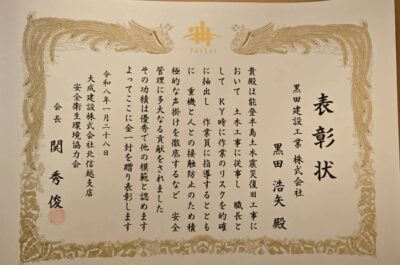 TAISEI
表彰状
黒田建設工業 株式会社
黒田 浩矢 殿
貴殿は能登半島土木震災復旧工事に
おいて 土木工事に従事し 職長と
して KY時に作業のリスクを的確
に抽出し 作業員に指導するととも
に 重機と人との接触防止のため積
極的な声掛けを徹底するなど 安全
管理に多大なる貢献をされました
その功績は優秀で他の模範と認めます
よってここに金一封を贈り表彰します
令和八年一月二十八日
大成建設株式会社北信越支店
安全衛生環境協力会
会長 関 秀俊